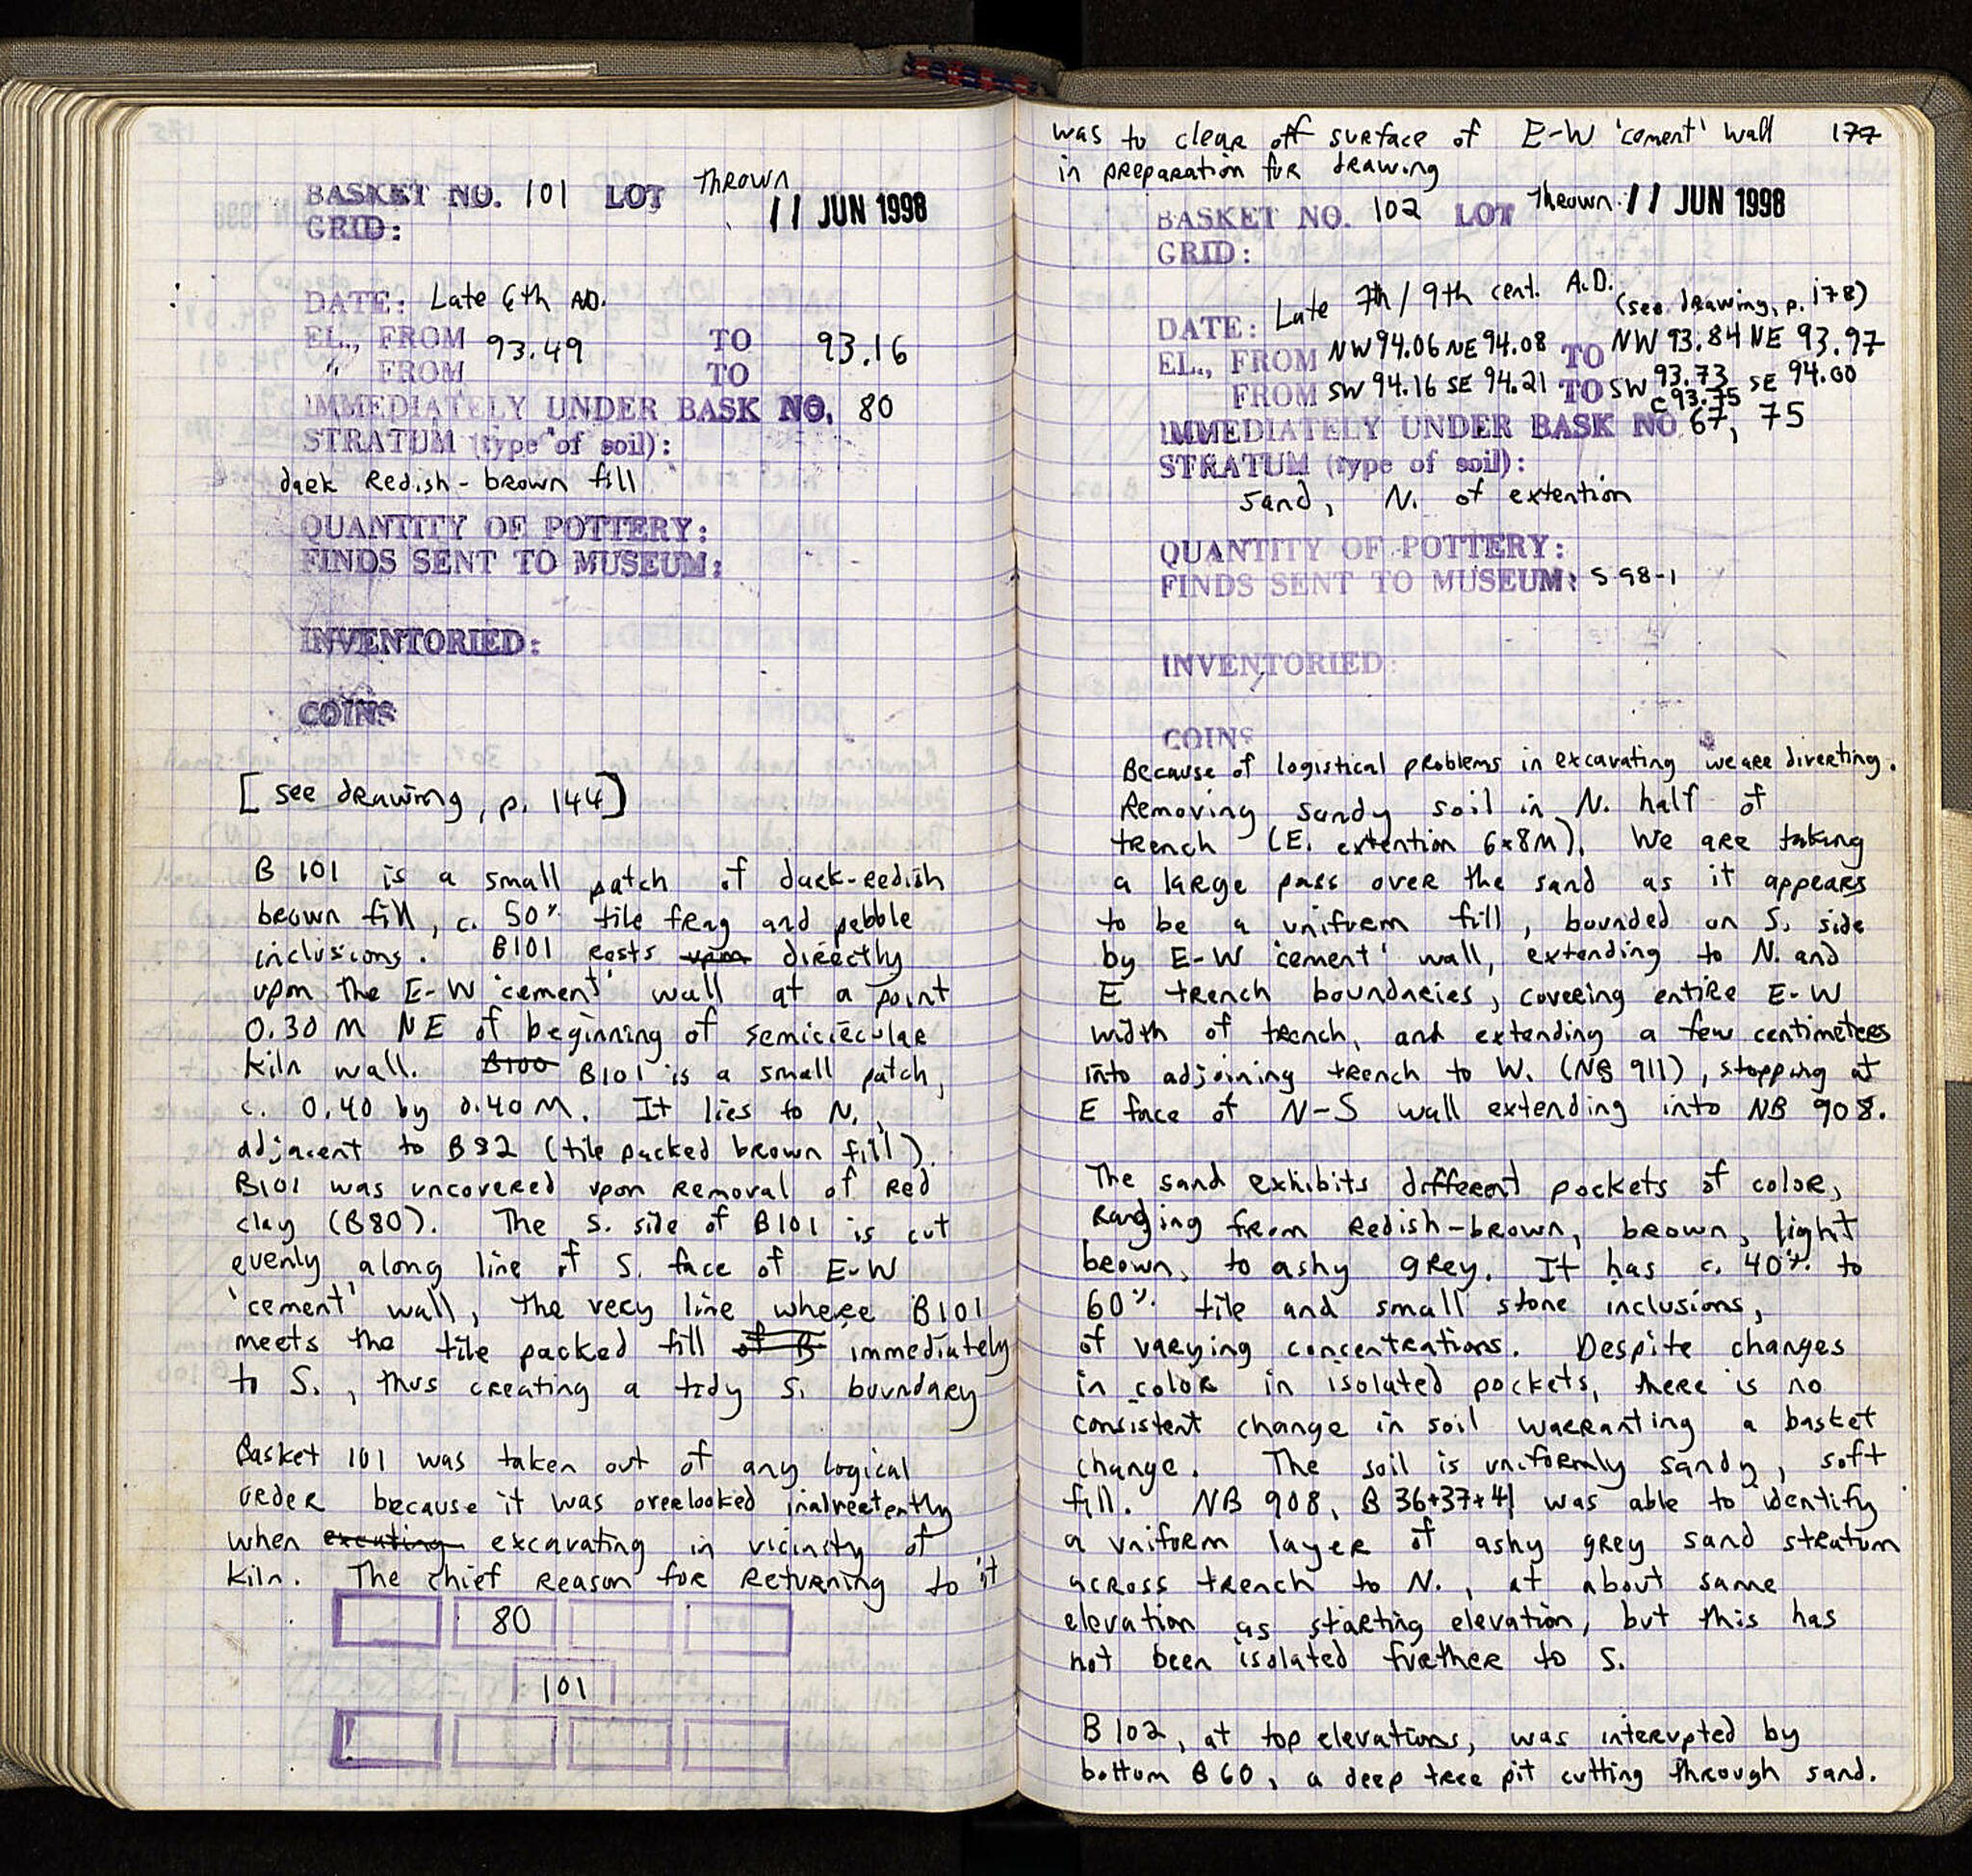 BASKET NO. 101 LOT Thrown
11 JUN 1998
GRID:
DATE: Late 6th AD.
EL., FROM 93.49 TO 93.16
" FROM TO
IMMEDIATELY UNDER BASK NO. 80
STRATUM (type of soil):
dark Redish-brown fill
QUANTITY OF POTTERY:
FINDS SENT TO MUSEUM:
INVENTORIED:
COINS
[see drawing, p. 144]
B 101 is a small patch of dark-redish
brown fill, c. 50% tile frag and pebble
inclusions. B101 rests upon directly
upon the E-W 'cement' wall at a point
0.30 M NE of beginning of semicircular
kiln wall. B100 B101 is a small patch,
c. 0.40 by 0.40M. It lies to N,
adjacent to B82 (tile packed brown fill).
B101 was uncovered upon removal of red
clay (B80). The S. side of B101 is cut
evenly along line of S. face of E-W
'cement' wall, the very line where B101
meets the tile packed fill of B immediately
to S., thus creating a tidy S. boundary
Basket 101 was taken out of any logical
order because it was overlooked inadvertently
when excating excavating in vicinity of
kiln. The chief reason for returning to it
80
101
was to clear off surface of E-W 'cement' wall 177
in preparation for drawing
BASKET NO. 102 LOT Thrown 11 JUN 1998
GRID:
DATE: Late 7th / 9th cent. A.D. (see drawing, p. 178)
EL., FROM NW 94.06 NE 94.08 TO NW 93.84 NE 93.97
FROM SW 94.16 SE 94.21 TO SW 93.73 SE 94.00
C 93.75
IMMEDIATELY UNDER BASK NO 67, 75
STRATUM (type of soil):
sand, N. of extention
QUANTITY OF POTTERY:
FINDS SENT TO MUSEUM: S 98-1
INVENTORIED:
COINS
Because of logistical problems in excavating we are diverting.
Removing sandy soil in N. half of
trench (E. extention 6x8M). We are taking
a large pass over the sand as it appears
to be a uniform fill, bounded on S. side
by E-W 'cement' wall, extending to N. and
E trench boundaries, covering entire E-W
width of trench, and extending a few centimeters
into adjoining trench to W. (NB 911), stopping at
E face of N-S wall extending into NB 908.
The sand exhibits different pockets of color,
ranging from redish-brown, brown, light
brown, to ashy grey. It has c. 40% to
60% tile and small stone inclusions,
of varying concentrations. Despite changes
in color in isolated pockets, there is no
consistent change in soil warranting a basket
change. The soil is uniformly sandy, soft
fill. NB 908, B 36+37+41 was able to identify
a uniform layer of ashy grey sand stratum
across trench to N., at about same
elevation as starting elevation, but this has
not been isolated further to S.
B 102, at top elevations, was interupted by
bottom B60, a deep tree pit cutting through sand.